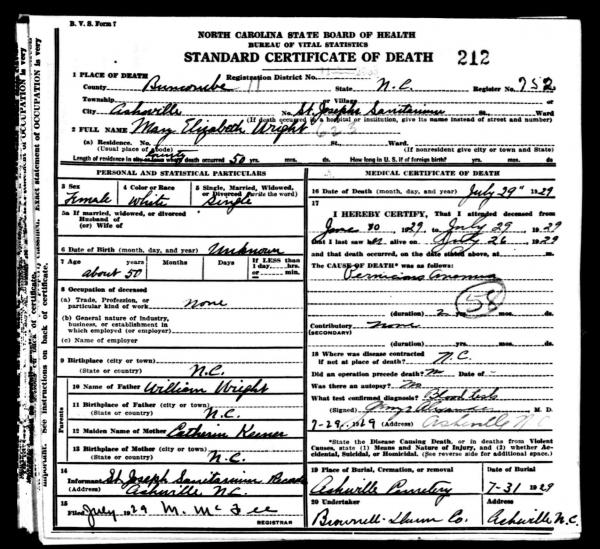 B. V. S. Form 7
NORTH CAROLINA STATE BOARD OF HEALTH
BUREAU OF VITAL STATISTICS
STANDARD CERTIFICATE OF DEATH 212
1 PLACE OF DEATH Registration District No.
County Buncombe State N.C. Register No. 752
Township or Village
City Asheville No. St Josephs Sanitarium St., Ward
(If death occurred in a hospital or institution, give its name instead of street and number)
2 FULL NAME Mary Elizabeth Wright 623
(a) Residence. No. St. Ward
(Usual place of abode) (If nonresident give city or town and State)
Length of residence in city where death occurred 50 yrs. mos. ds. How long in U. S. if of foreign birth? yrs. mos. ds.
PERSONAL AND STATISTICAL PARTICULARS
3 Sex Female
4 Color or Race White
5 Single, Married, Widowed, or Divorced (write the word) Single
5a If married, widowed, or divorced
Husband of
(or) Wife of
6 Date of Birth (month, day, and year) Unknown
7 Age years Months Days If LESS than
1 day, hrs.
or min.
about 50
8 Occupation of deceased
(a) Trade, Profession, or
particular kind of work None
(b) General nature of industry,
business, or establishment in
which employed (or employer)
(c) Name of employer
9 Birthplace (city or town)
(State or country) N.C.
Parents
10 Name of Father William Wright
11 Birthplace of Father (city or town)
(State or country) N.C.
12 Maiden Name of Mother Catherin Keener
13 Birthplace of Mother (city or town)
(State or country) N.C.
14
Informant St. Joseph Sanitarium Records
(Address) Asheville N.C.
15
Filed July 1929 M. McFee
REGISTRAR
MEDICAL CERTIFICATE OF DEATH
16 Date of Death (month, day, and year) July 29" 1929
17
I HEREBY CERTIFY, That I attended deceased from
June 30 1929 to July 29 1929
that I last saw h alive on July 26 1929
and that death occurred, on the date stated above, at m.
The CAUSE OF DEATH* was as follows:
Pernicious Anemia
58
(duration) 2 yrs. mos. ds.
Contributory None
(SECONDARY)
(duration) yrs. mos. ds.
18 Where was disease contracted
if not at place of death? N.C.
Did an operation precede death? No Date of -
Was there an autopsy? No
What test confirmed diagnosis? Blood tests
(Signed) M. D.
7-29, 1929 (Address) Asheville N.
*State the Disease Causing Death, or in deaths from Violent
Causes, state (1) Means and Nature of Injury, and (2) whether Ac-
cidental, Suicidal, or Homicidal. (See reverse side for additional space.)
19 Place of Burial, Cremation, or removal Date of Burial
Asheville Cemetery 7-31 1929
20 Undertaker Address
Brownell-Dunn Co. Asheville N.C.
Exact statement of OCCUPATION is very
important. See instructions on back of certificate.